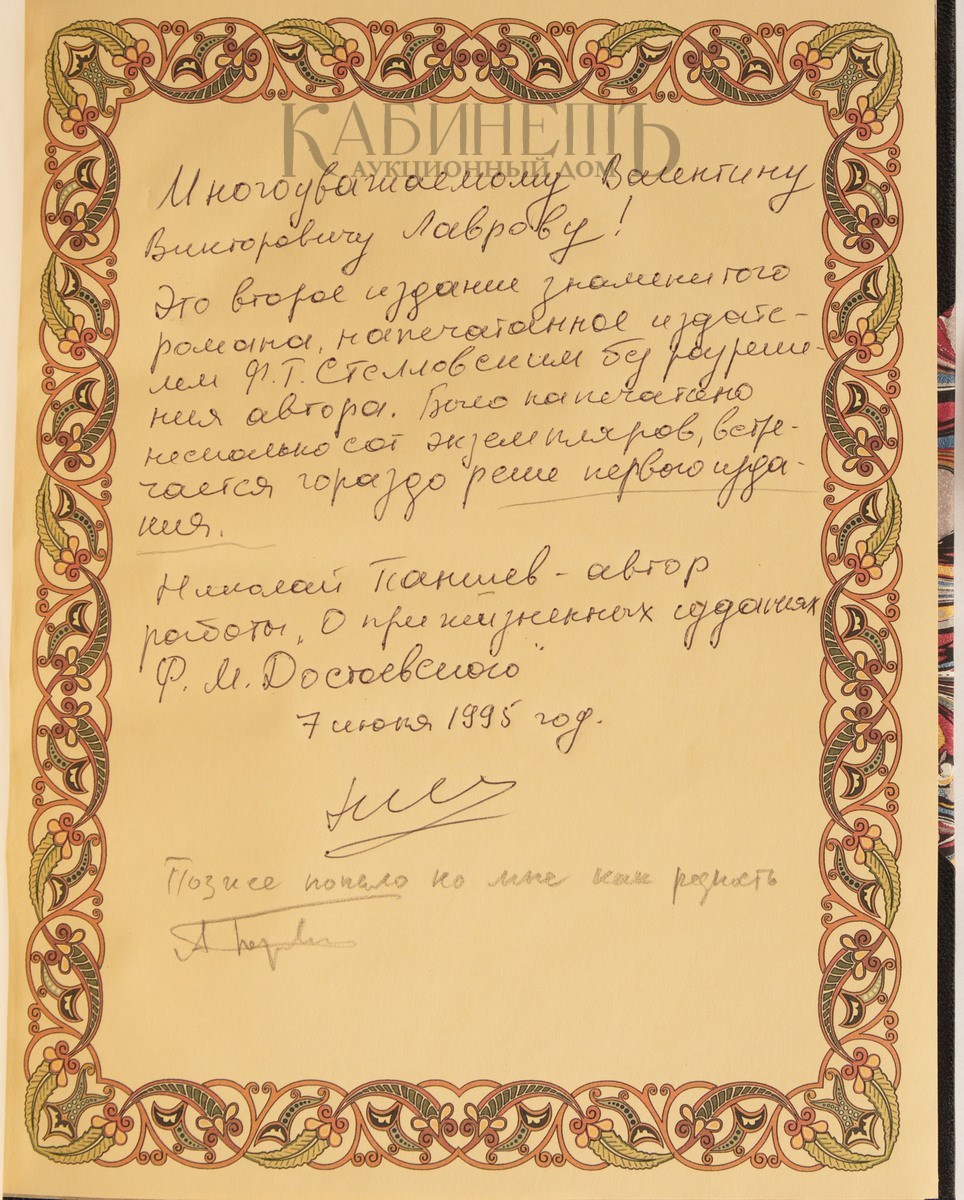 КАБИНЕТЪ
АУКЦИОННЫЙ ДОМ
Многоуважаемому Валентину
Викторовичу Лаврову!
Это второе издание знаменитого
романа, напечатанное издате-
лем Ф.Т. Стелловским без разреше-
ния автора. Было напечатано
несколько сот экземпляров, встре-
чается гораздо реже первого изда-
ния.
Николай Паншев - автор
работы „О прижизненных изданиях
Ф. М. Достоевского"
7 июня 1995 год.
Позже попало ко мне как редкость